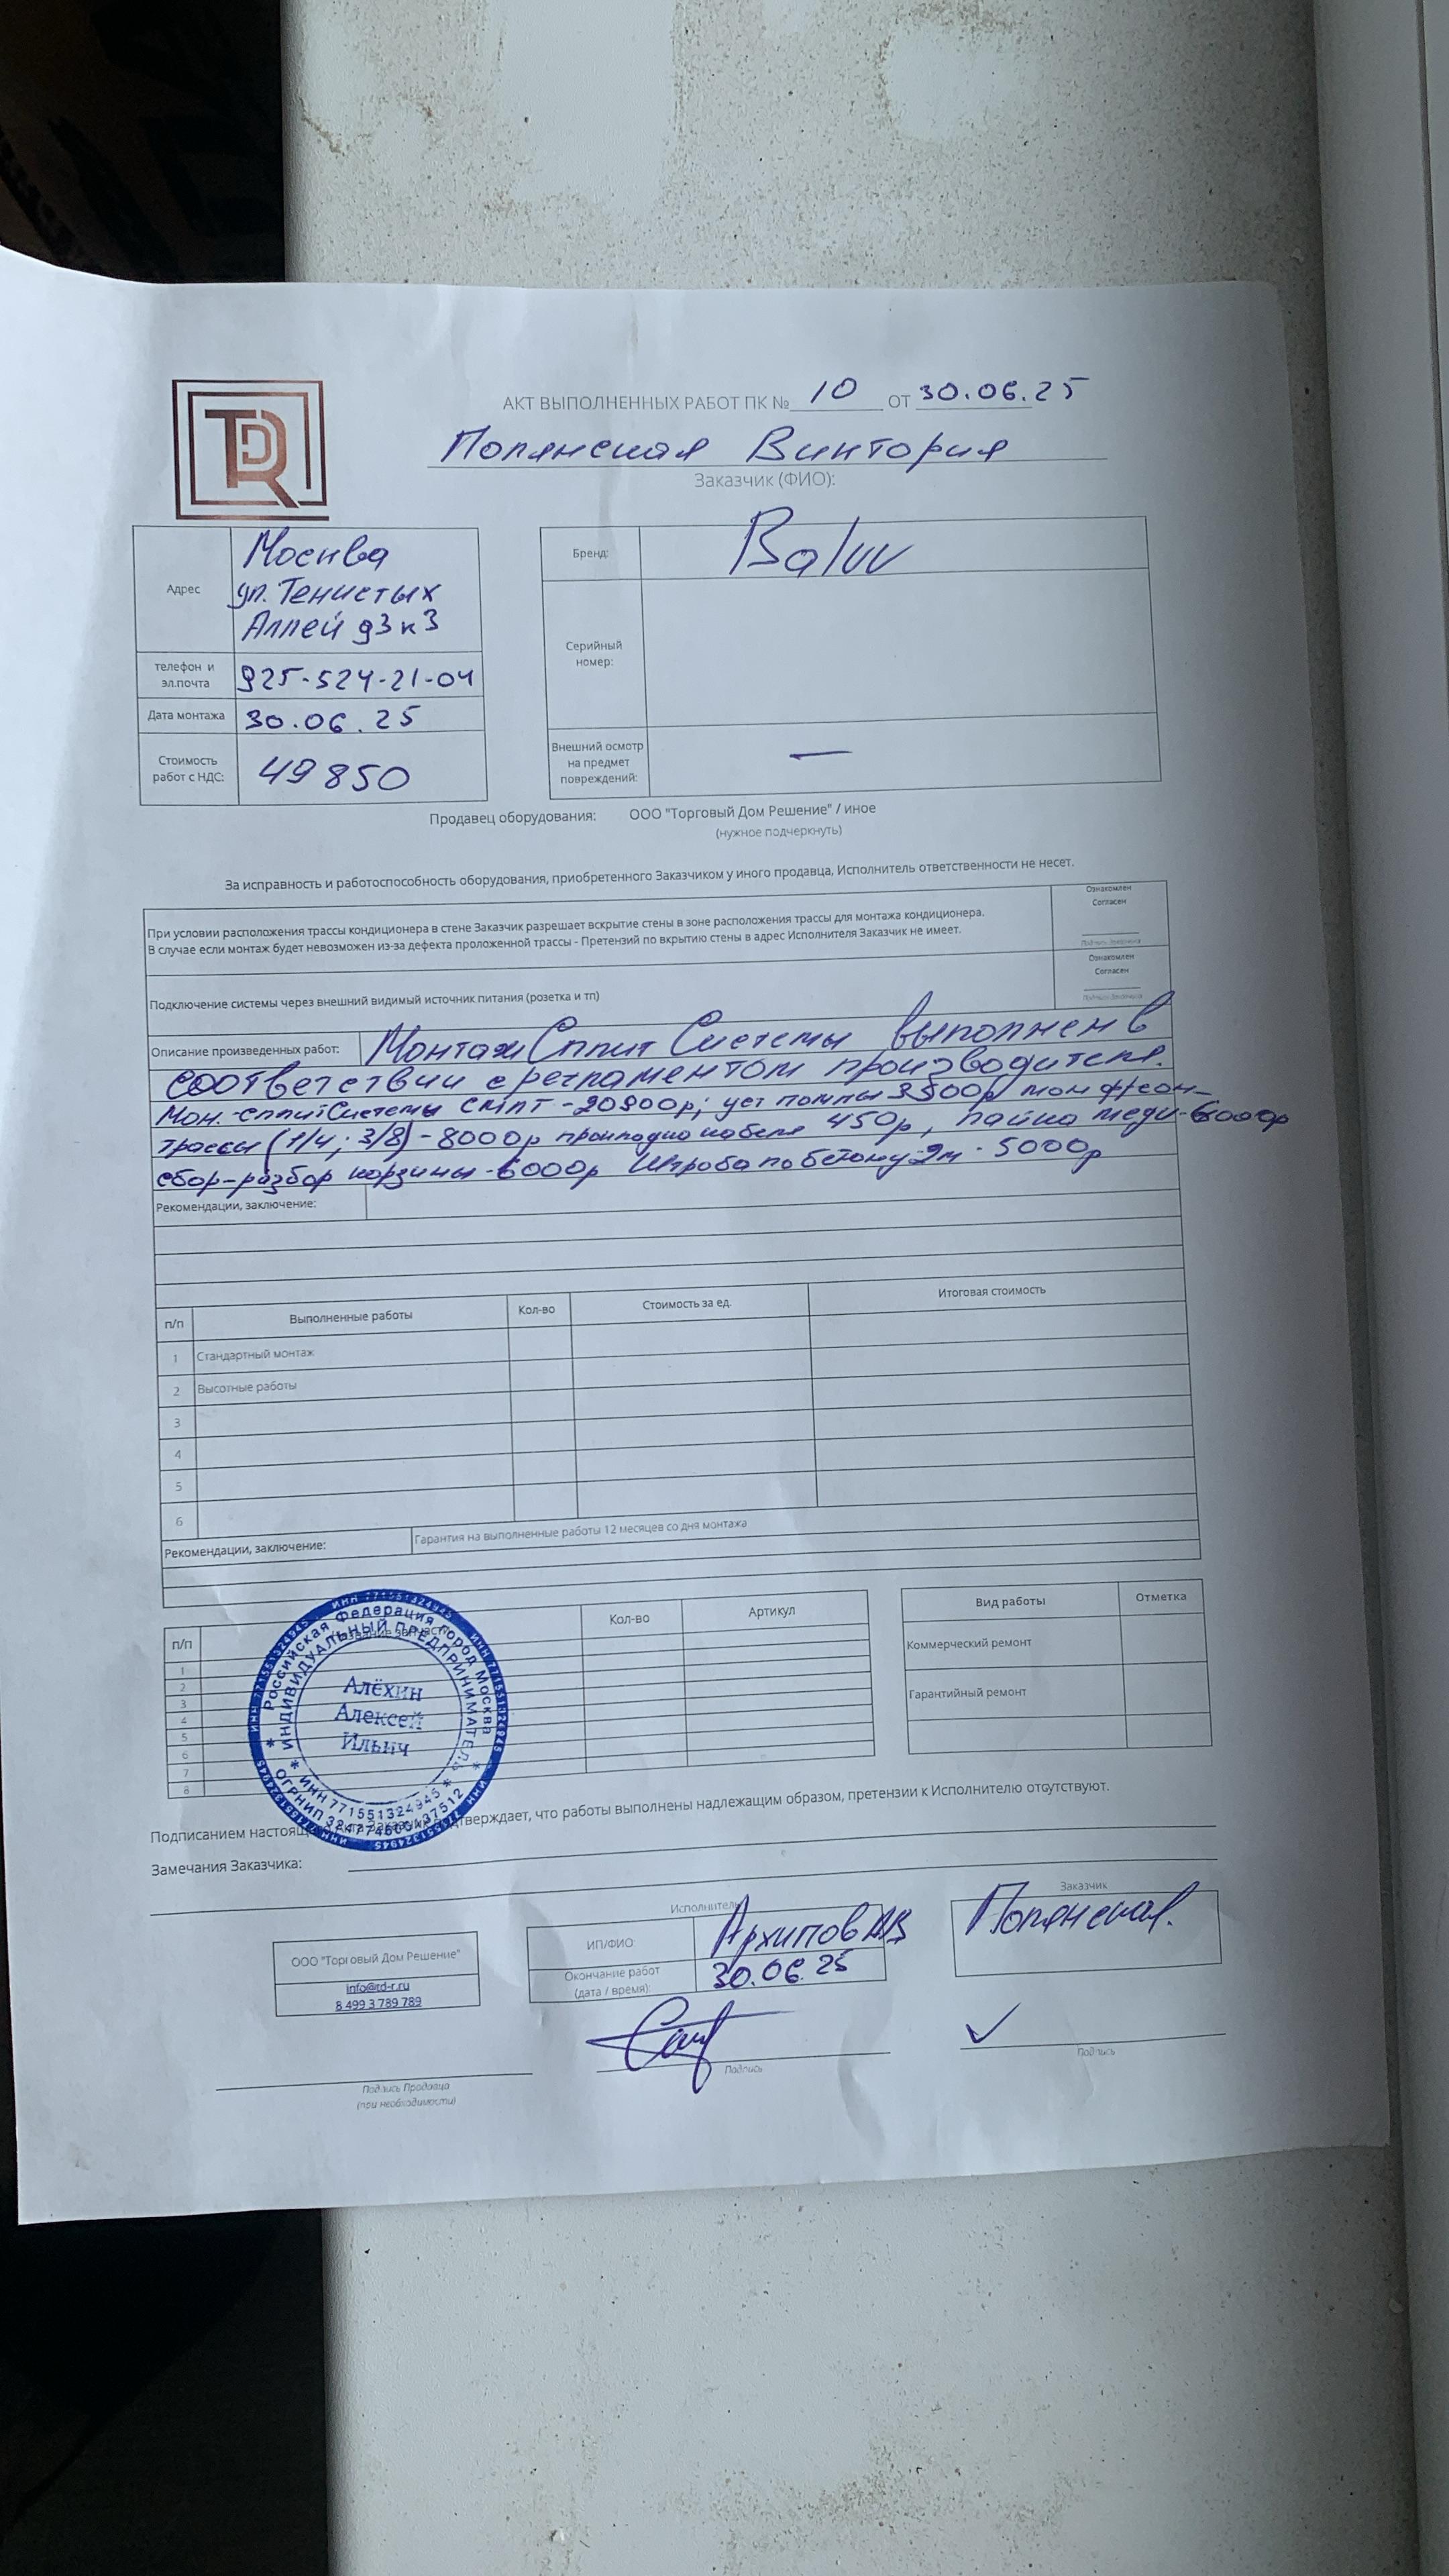 TDR
АКТ ВЫПОЛНЕННЫХ РАБОТ ПК № 10 ОТ 30.06.25
Полянская Виктория
Заказчик (ФИО):
Адрес
Москва
ул. Тенистых
Аллей д3 к3
телефон и
эл.почта
925-524-21-04
Дата монтажа
30.06.25
Стоимость
работ с НДС:
49850
Бренд:
Baluu
Серийный
номер:
Внешний осмотр
на предмет
повреждений:
—
Продавец оборудования: ООО "Торговый Дом Решение" / иное
(нужное подчеркнуть)
За исправность и работоспособность оборудования, приобретенного Заказчиком у иного продавца, Исполнитель ответственности не несет.
При условии расположения трассы кондиционера в стене Заказчик разрешает вскрытие стены в зоне расположения трассы для монтажа кондиционера.
В случае если монтаж будет невозможен из-за дефекта проложенной трассы - Претензий по вкрытию стены в адрес Исполнителя Заказчик не имеет.
Ознакомлен
Согласен
Подпись Заказчика
Подключение системы через внешний видимый источник питания (розетка и тп)
Ознакомлен
Согласен
Подпись Заказчика
Описание произведенных работ: Монтаж Сплит Системы выполнен в
соответствии с регламентом производителя.
Мон. сплит Системы -20900р; уст помпы 3500р мон фреон-
трассы (1/4; 3/8) - 8000р прокладка кабеля 450р, пайка меди-6000р
сбор-разбор корзины-6000р Штроба по бетону-2м - 5000р
Рекомендации, заключение:
п/п Выполненные работы Кол-во Стоимость за ед. Итоговая стоимость
1 Стандартный монтаж
2 Высотные работы
3
4
5
6
Рекомендации, заключение: Гарантия на выполненные работы 12 месяцев со дня монтажа
п/п Кол-во Артикул
1
2
3
4
5
6
7
8
Вид работы Отметка
Коммерческий ремонт
Гарантийный ремонт
ИНН 771551324945
Российская Федерация город Москва
ИНДИВИДУАЛЬНЫЙ ПРЕДПРИНИМАТЕЛЬ
Алёхин
Алексей
Ильич
ИНН 771551324945
ОГРНИП
Подписанием настоящего Акта Заказчик подтверждает, что работы выполнены надлежащим образом, претензии к Исполнителю отсутствуют.
Замечания Заказчика:
ООО "Торговый Дом Решение"
info@td-r.ru
8 499 3 789 789
Исполнитель
ИП/ФИО: Архипов АВ
Окончание работ
(дата / время):
30.06.25
Подпись
Заказчик
Полянская.
Подпись
Подпись Продавца
(при необходимости)